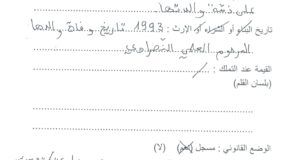 على ذمة والدتها
تاريخ البناء او الشراء او الارث : 1993 تاريخ وفاة والدها
المرحوم
القيمة عند التملك :
(بلسان القلم)
الوضع القانوني : مسجل (نعم) (لا)